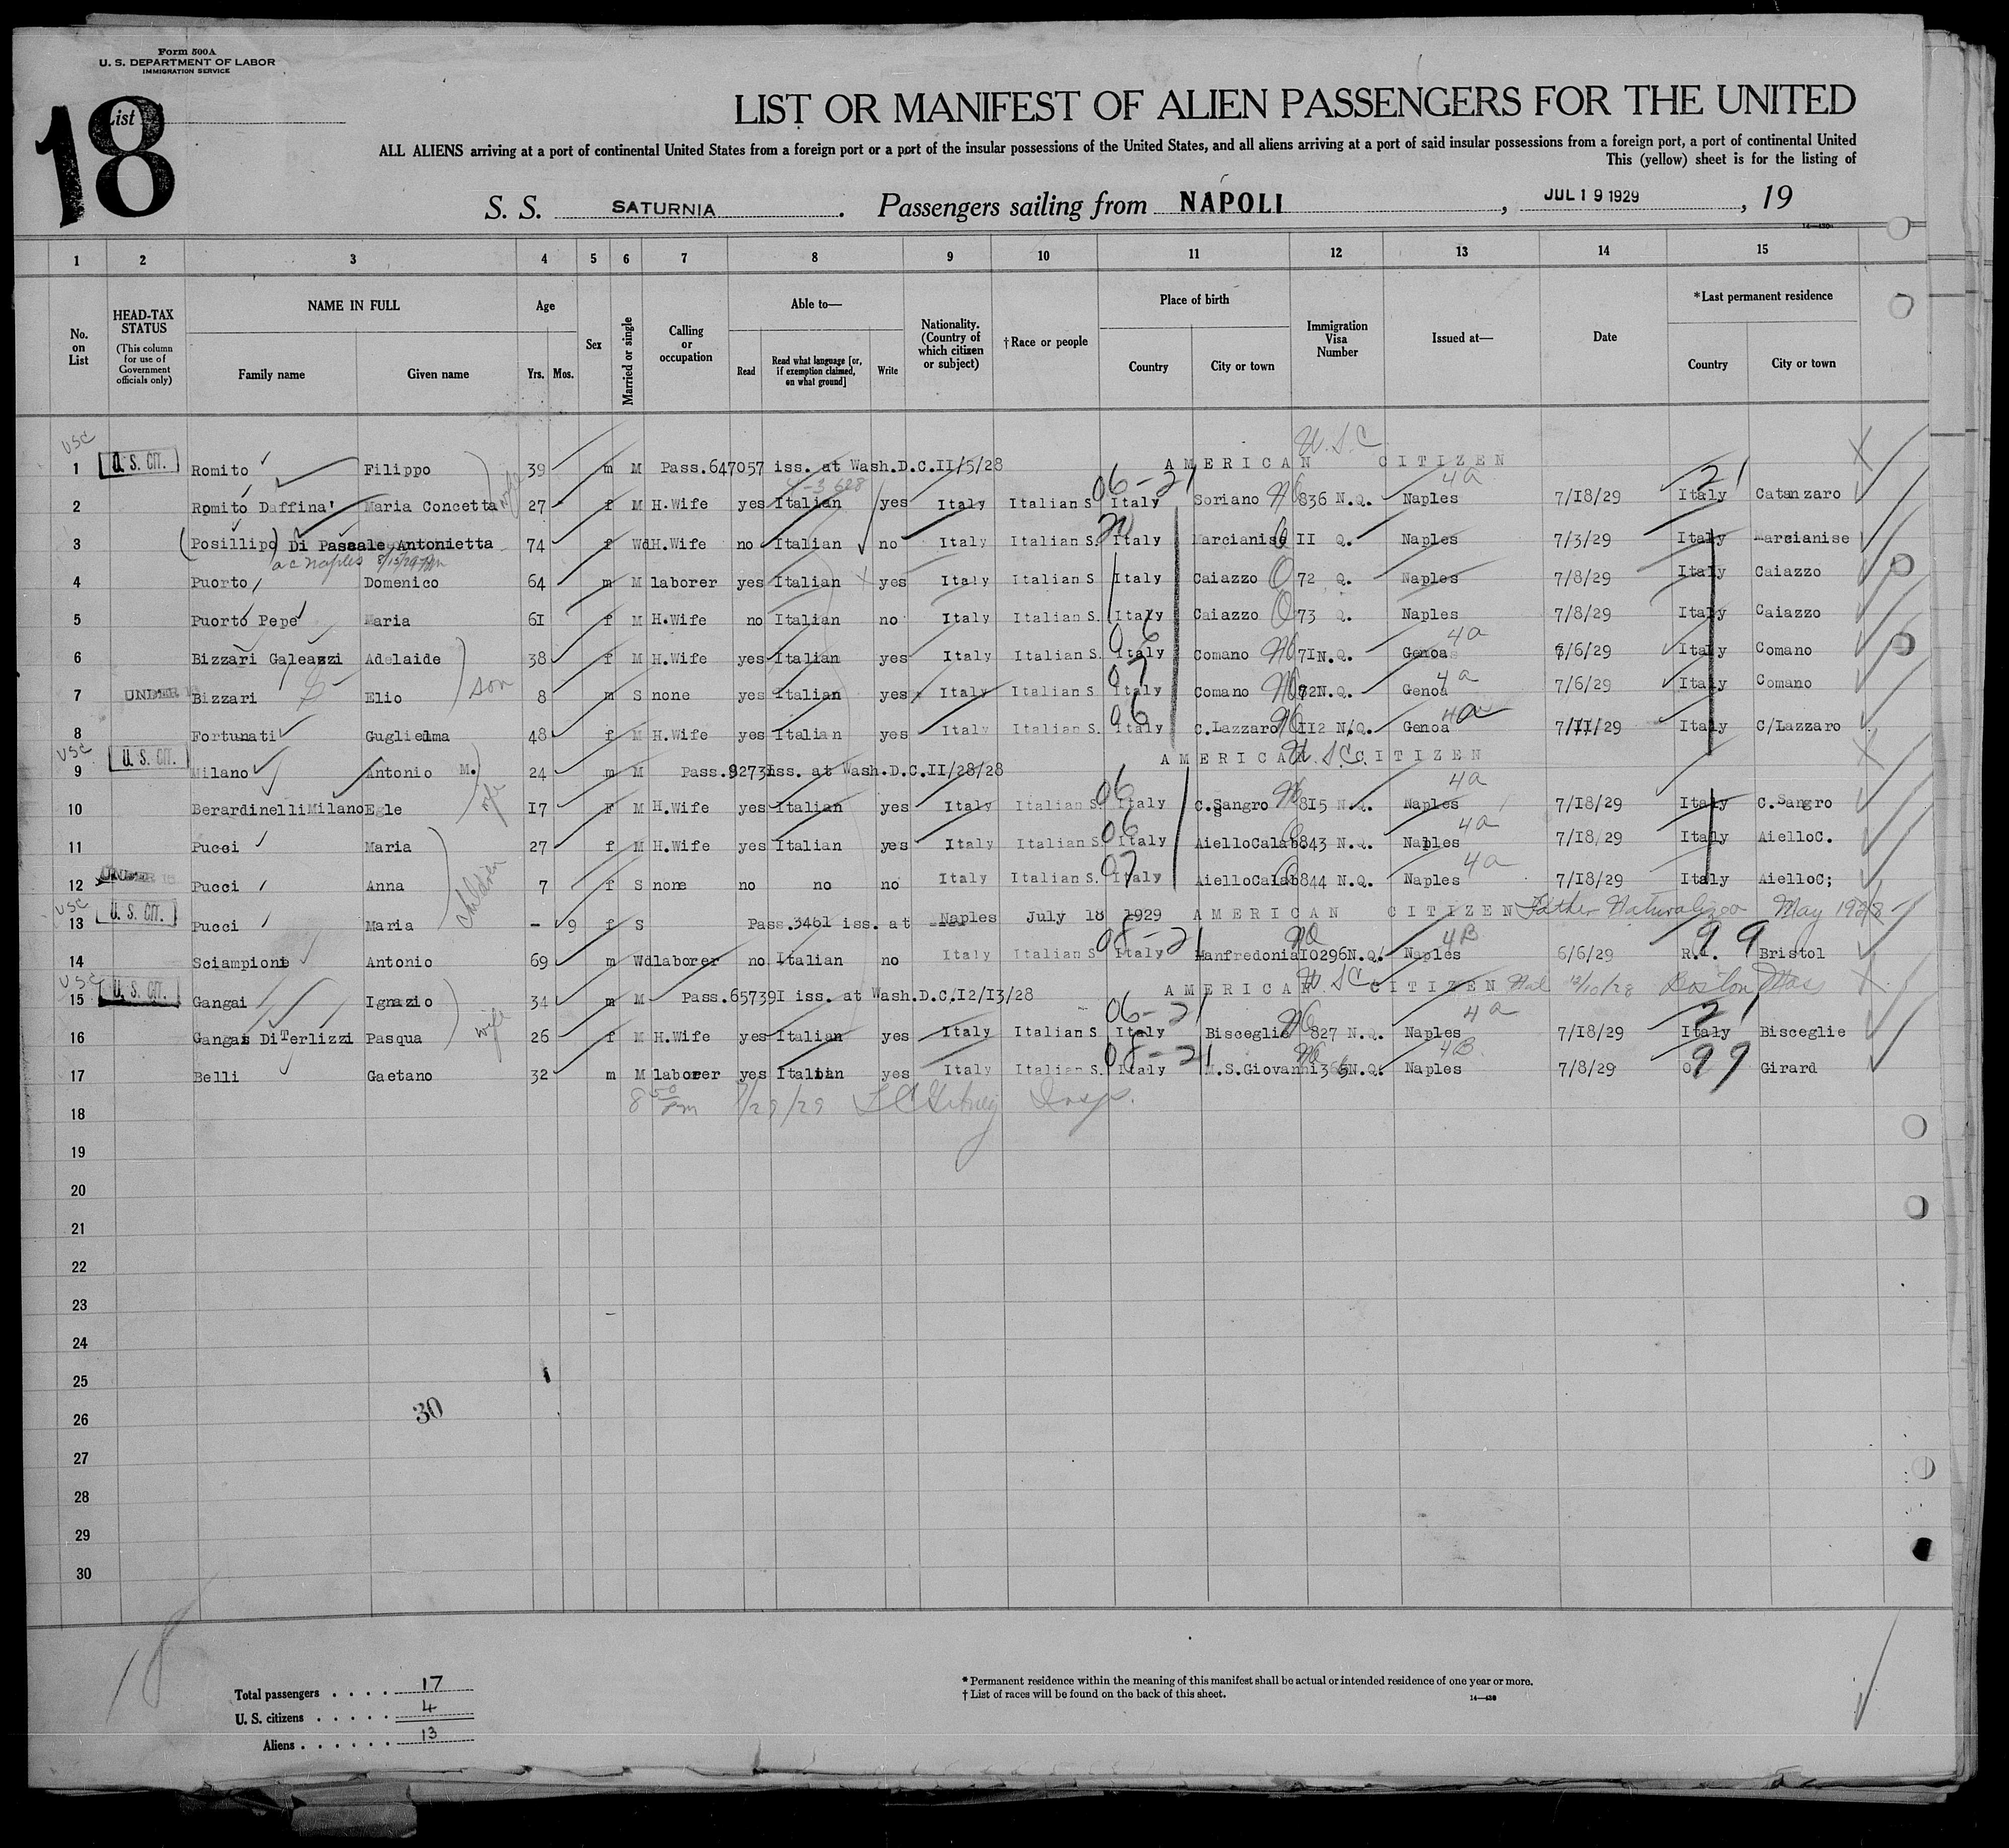 Form 500A
U. S. DEPARTMENT OF LABOR
IMMIGRATION SERVICE
List
18
LIST OR MANIFEST OF ALIEN PASSENGERS FOR THE UNITED
ALL ALIENS arriving at a port of continental United States from a foreign port or a port of the insular possessions of the United States, and all aliens arriving at a port of said insular possessions from a foreign port, a port of continental United
This (yellow) sheet is for the listing of
S. S. SATURNIA. Passengers sailing from NAPOLI, JUL 19 1929, 19
14—430
1 2 3 4 5 6 7 8 9 10 11 12 13 14 15
No. on List
HEAD-TAX STATUS (This column for use of Government officials only)
NAME IN FULL
Family name Given name
Age
Yrs. Mos.
Sex
Married or single
Calling or occupation
Able to—
Read Read what language [or, if exemption claimed, on what ground] Write
Nationality. (Country of which citizen or subject)
†Race or people
Place of birth
Country City or town
Immigration Visa Number
Issued at—
Date
*Last permanent residence
Country City or town
USC U.S.C
1 U. S. CIT. Romito Filippo 39 m M Pass.647057 iss. at Wash.D.C.II/5/28 AMERICAN CITIZEN
wife 4-3 628 06-21 4a 21
2 Romito Daffina' Maria Concetta 27 f M H.Wife yes Italian yes Italy Italian S. Italy Soriano NQ 836 N.Q. Naples 7/18/29 Italy Catanzaro
3 (Posillipo) Di Pascale Antonietta 74 f Wd H.Wife no Italian no Italy Italian S. Italy Marcianise II Q. Naples 7/3/29 Italy Marcianise
a c Naples
4 Puorto Domenico 64 m M laborer yes Italian yes Italy Italian S Italy Caiazzo Q 72 Q. Naples 7/8/29 Italy Caiazzo
5 Puorto Pepe Maria 61 f M H.Wife no Italian no Italy Italian S. Italy Caiazzo Q 73 Q. Naples 7/8/29 Italy Caiazzo
06 4a
6 Bizzari Galeazzi Adelaide 38 f M H.Wife yes Italian yes Italy Italian S. Italy Comano NQ 71N.Q. Genoa 7/6/29 Italy Comano
son 07 4a
7 UNDER 16 Bizzari Elio 8 m S none yes Italian yes Italy Italian S. Italy Comano NQ 72N.Q. Genoa 7/6/29 Italy Comano
06 4a
8 Fortunati Guglielma 48 f M H.Wife yes Italian yes Italy Italian S. Italy C.Lazzaro NQ 112 N.Q. Genoa 7/11/29 Italy C/Lazzaro
USC U.S.C.
9 U. S. CIT. Milano Antonio M. 24 m M Pass.92731 iss. at Wash.D.C.II/28/28 AMERICAN CITIZEN
wife 06 4a
10 Berardinelli Milano Egle 17 F M H.Wife yes Italian yes Italy Italian S. Italy C.Sangro NQ 815 N.Q. Naples 7/18/29 Italy C.Sangro
06 4a
11 Pucci Maria 27 f M H.Wife yes Italian yes Italy Italian S. Italy AielloCalab 843 N.Q. Naples 7/18/29 Italy AielloC.
children 07 4a
12 UNDER 16 Pucci Anna 7 f S none no no no Italy Italian S. Italy AielloCalab 844 N.Q. Naples 7/18/29 Italy AielloC;
USC
13 U. S. CIT. Pucci Maria - 9 f S Pass.3461 iss. at Naples July 18 1929 AMERICAN CITIZEN Father Naturalized May 1928
08-21 NQ 4B 99
14 Sciampione Antonio 69 m Wd laborer no Italian no Italy Italian S Italy Manfredonia 10296N.Q. Naples 6/6/29 R.I. Bristol
USC U.S.C
15 U. S. CIT. Gangai Ignazio 34 m M Pass.657391 iss. at Wash.D.C,12/13/28 AMERICAN CITIZEN Nat 12/10/28 Boston Mass
wife 06-21 4a 21
16 Gangai DiTerlizzi Pasqua 26 f M H.Wife yes Italian yes Italy Italian S Italy Bisceglie NQ 827 N.Q. Naples 7/18/29 Italy Bisceglie
08-21 NQ 4B 99
17 Belli Gaetano 32 m M laborer yes Italian yes Italy Italian S. Italy M.S.Giovanni 365N.Q. Naples 7/8/29 O. Girard
8 50 Pm 7/29/29 Insp.
18
19
20
21
22
23
24
25
26
27
28
29
30
30
18
Total passengers . . . . . 17
U. S. citizens . . . . . 4
Aliens . . . . . . 13
* Permanent residence within the meaning of this manifest shall be actual or intended residence of one year or more.
† List of races will be found on the back of this sheet.
14—430